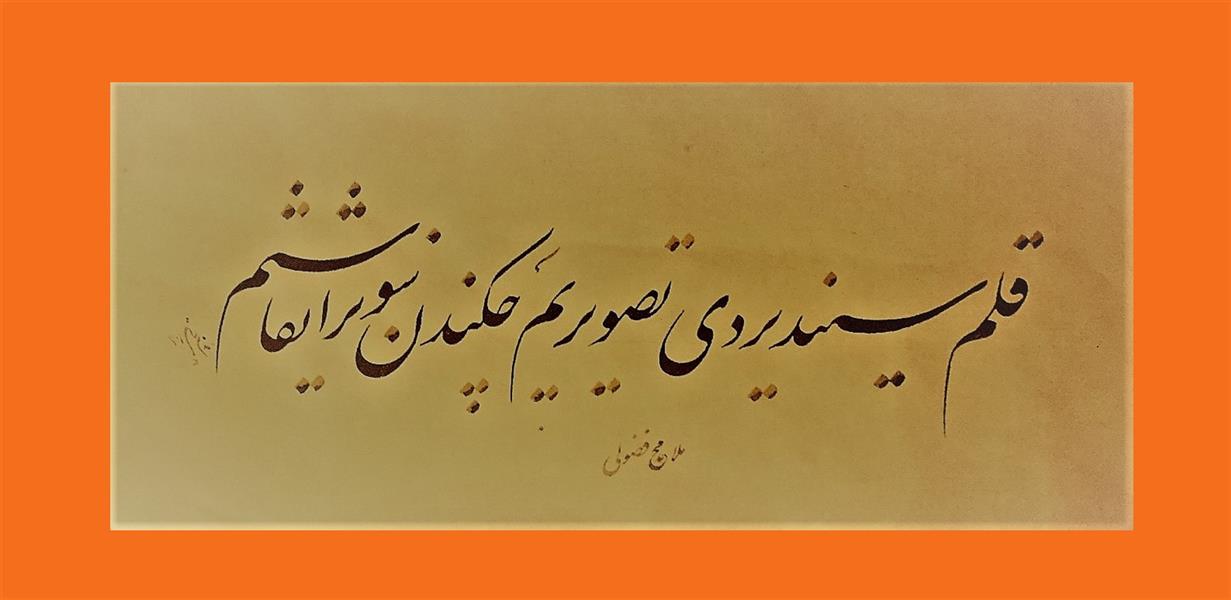 قلم سیندیردی تصویریم چکندن سونرا نقاشیم
ملا محمد فضولی